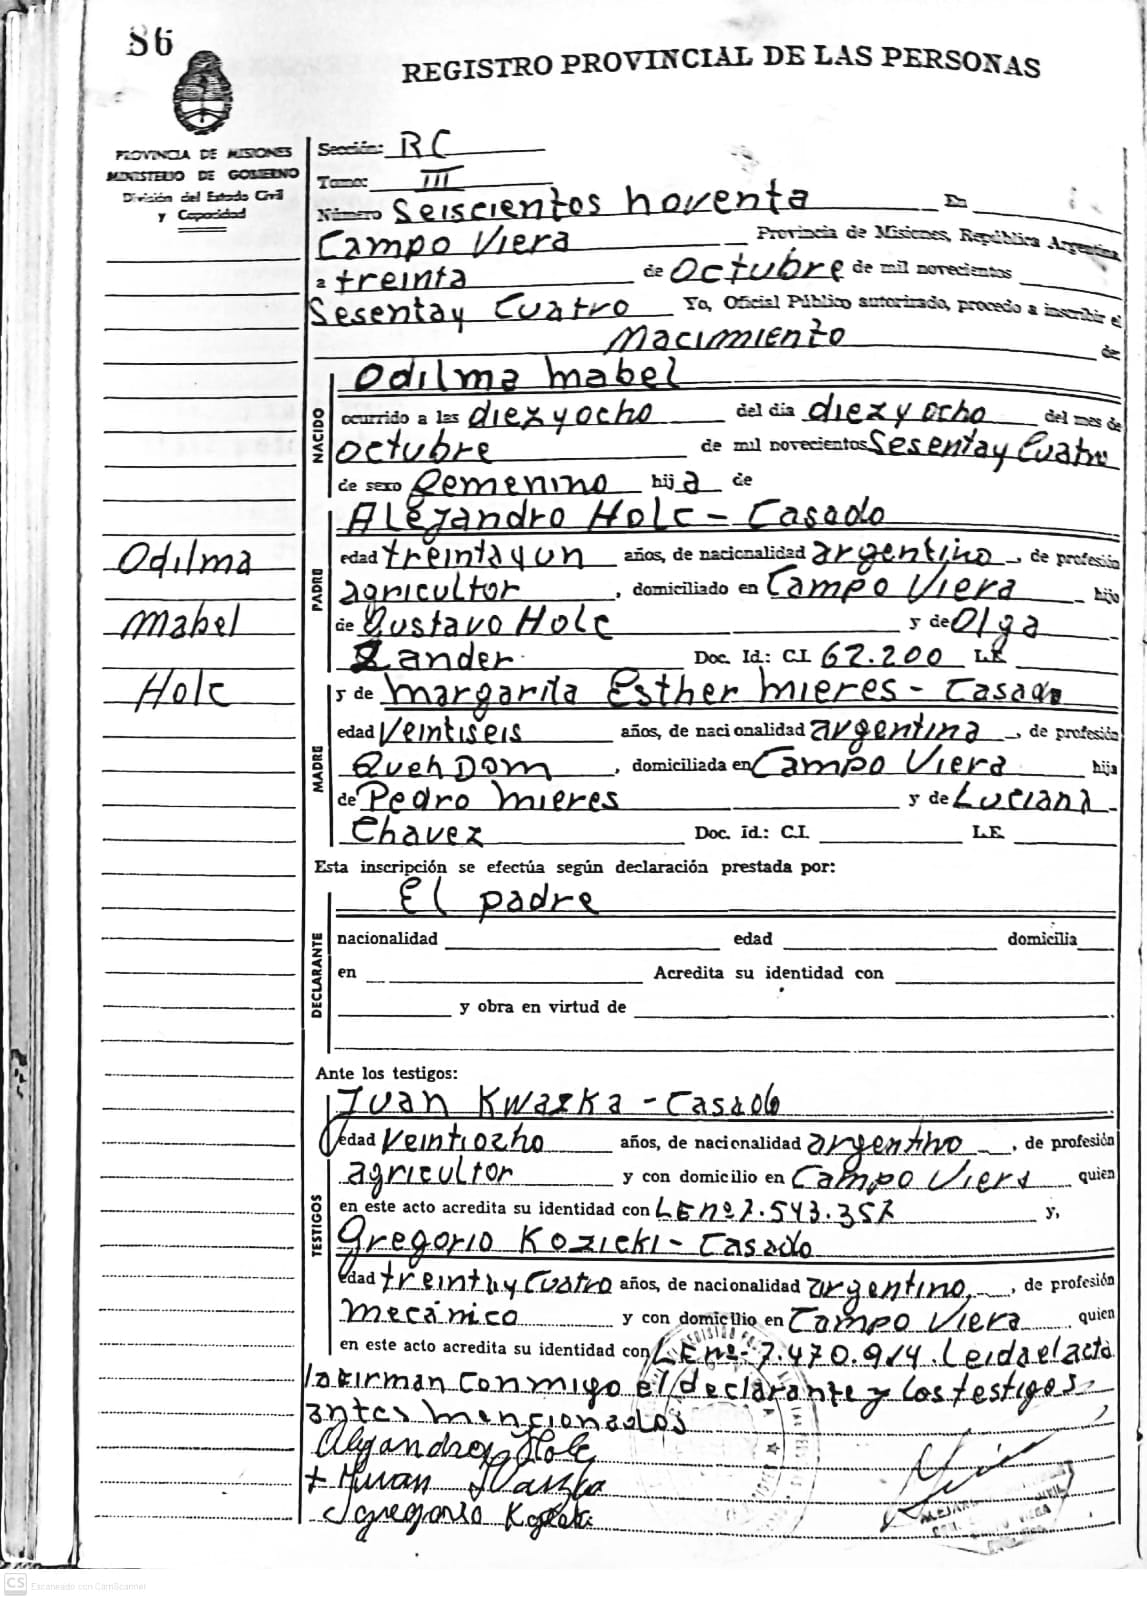 86
REGISTRO PROVINCIAL DE LAS PERSONAS
PROVINCIA DE MISIONES
MINISTERIO DE GOBIERNO
División del Estado Civil
y Capacidad
Sección: RC
Tomo: III
Número Seiscientos noventa En
Campo Viera Provincia de Misiones, República Argentina
a treinta de Octubre de mil novecientos
Sesenta y Cuatro Yo, Oficial Público autorizado, procedo a inscribir el
Nacimiento de
Odilma Mabel
NACIDO
ocurrido a las diez y ocho del día diez y ocho del mes de
octubre de mil novecientos Sesenta y Cuatro
de sexo Femenino hija de
Alejandro Holc - Casado
Odilma
Mabel
Holc
PADRE
edad treinta y un años, de nacionalidad argentino, de profesión
agricultor, domiciliado en Campo Viera hijo
de Gustavo Holc y de Olga
Zander Doc. Id.: C.I. 62.200 L.E.
y de Margarita Esther Mieres - Casada
MADRE
edad Veintiseis años, de nacionalidad argentina, de profesión
Queh Dom, domiciliada en Campo Viera hija
de Pedro Mieres y de Luciana
Chavez Doc. id.: C.I. L.E.
Esta inscripción se efectúa según declaración prestada por:
El padre
DECLARANTE
nacionalidad edad domicilia
en Acredita su identidad con
y obra en virtud de
Ante los testigos:
Juan Kwaska - Casado
TESTIGOS
edad Veintiocho años, de nacionalidad argentino, de profesión
agricultor y con domicilio en Campo Viera quien
en este acto acredita su identidad con LE nº 7.543.357 y,
Gregorio Kozicki - Casado
edad treinta y Cuatro años, de nacionalidad argentino, de profesión
mecánico y con domicilio en Campo Viera quien
en este acto acredita su identidad con LE nº 7.470.914. Leida el acta
la firman conmigo el declarante y los testigos
antes mencionados
Alejandro Holc
Juan
Gregorio
CS Escaneado con CamScanner